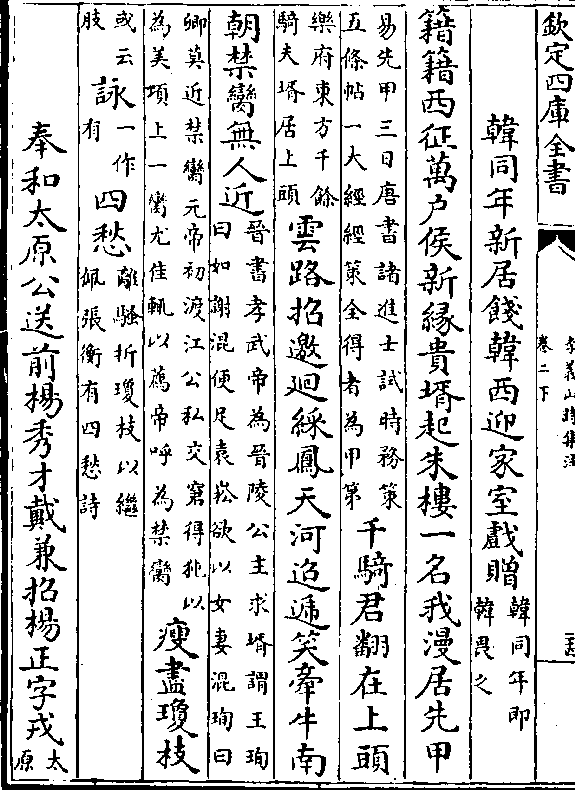 欽定四庫全書
李義山詩集注
卷二下
韓同年新居餞韓西迎家室戲贈韓同年即韓畏之
籍籍西征萬户侯新縁貴壻起朱樓一名我漫居先甲
易先甲三日唐書諸進士試時務策五條帖一大經經策全得者為甲第千騎君翻在上頭
樂府東方千餘騎夫壻居上頭雲路招邀迴綵鳳天河迢遞笑牽牛南
朝禁臠無人近晉書孝武帝為晉陵公主求壻謂王珣曰如謝混便足袁崧欲以女妻混珣曰
卿莫近禁臠元帝初渡江公私交窘得㹠以為美項上一臠尤佳輒以薦帝呼為禁臠瘦盡瓊枝
或云肢詠一作有四愁離騷折瓊枝以繼佩張衡有四愁詩
奉和太原公送前楊秀才戴兼招楊正字戎太原